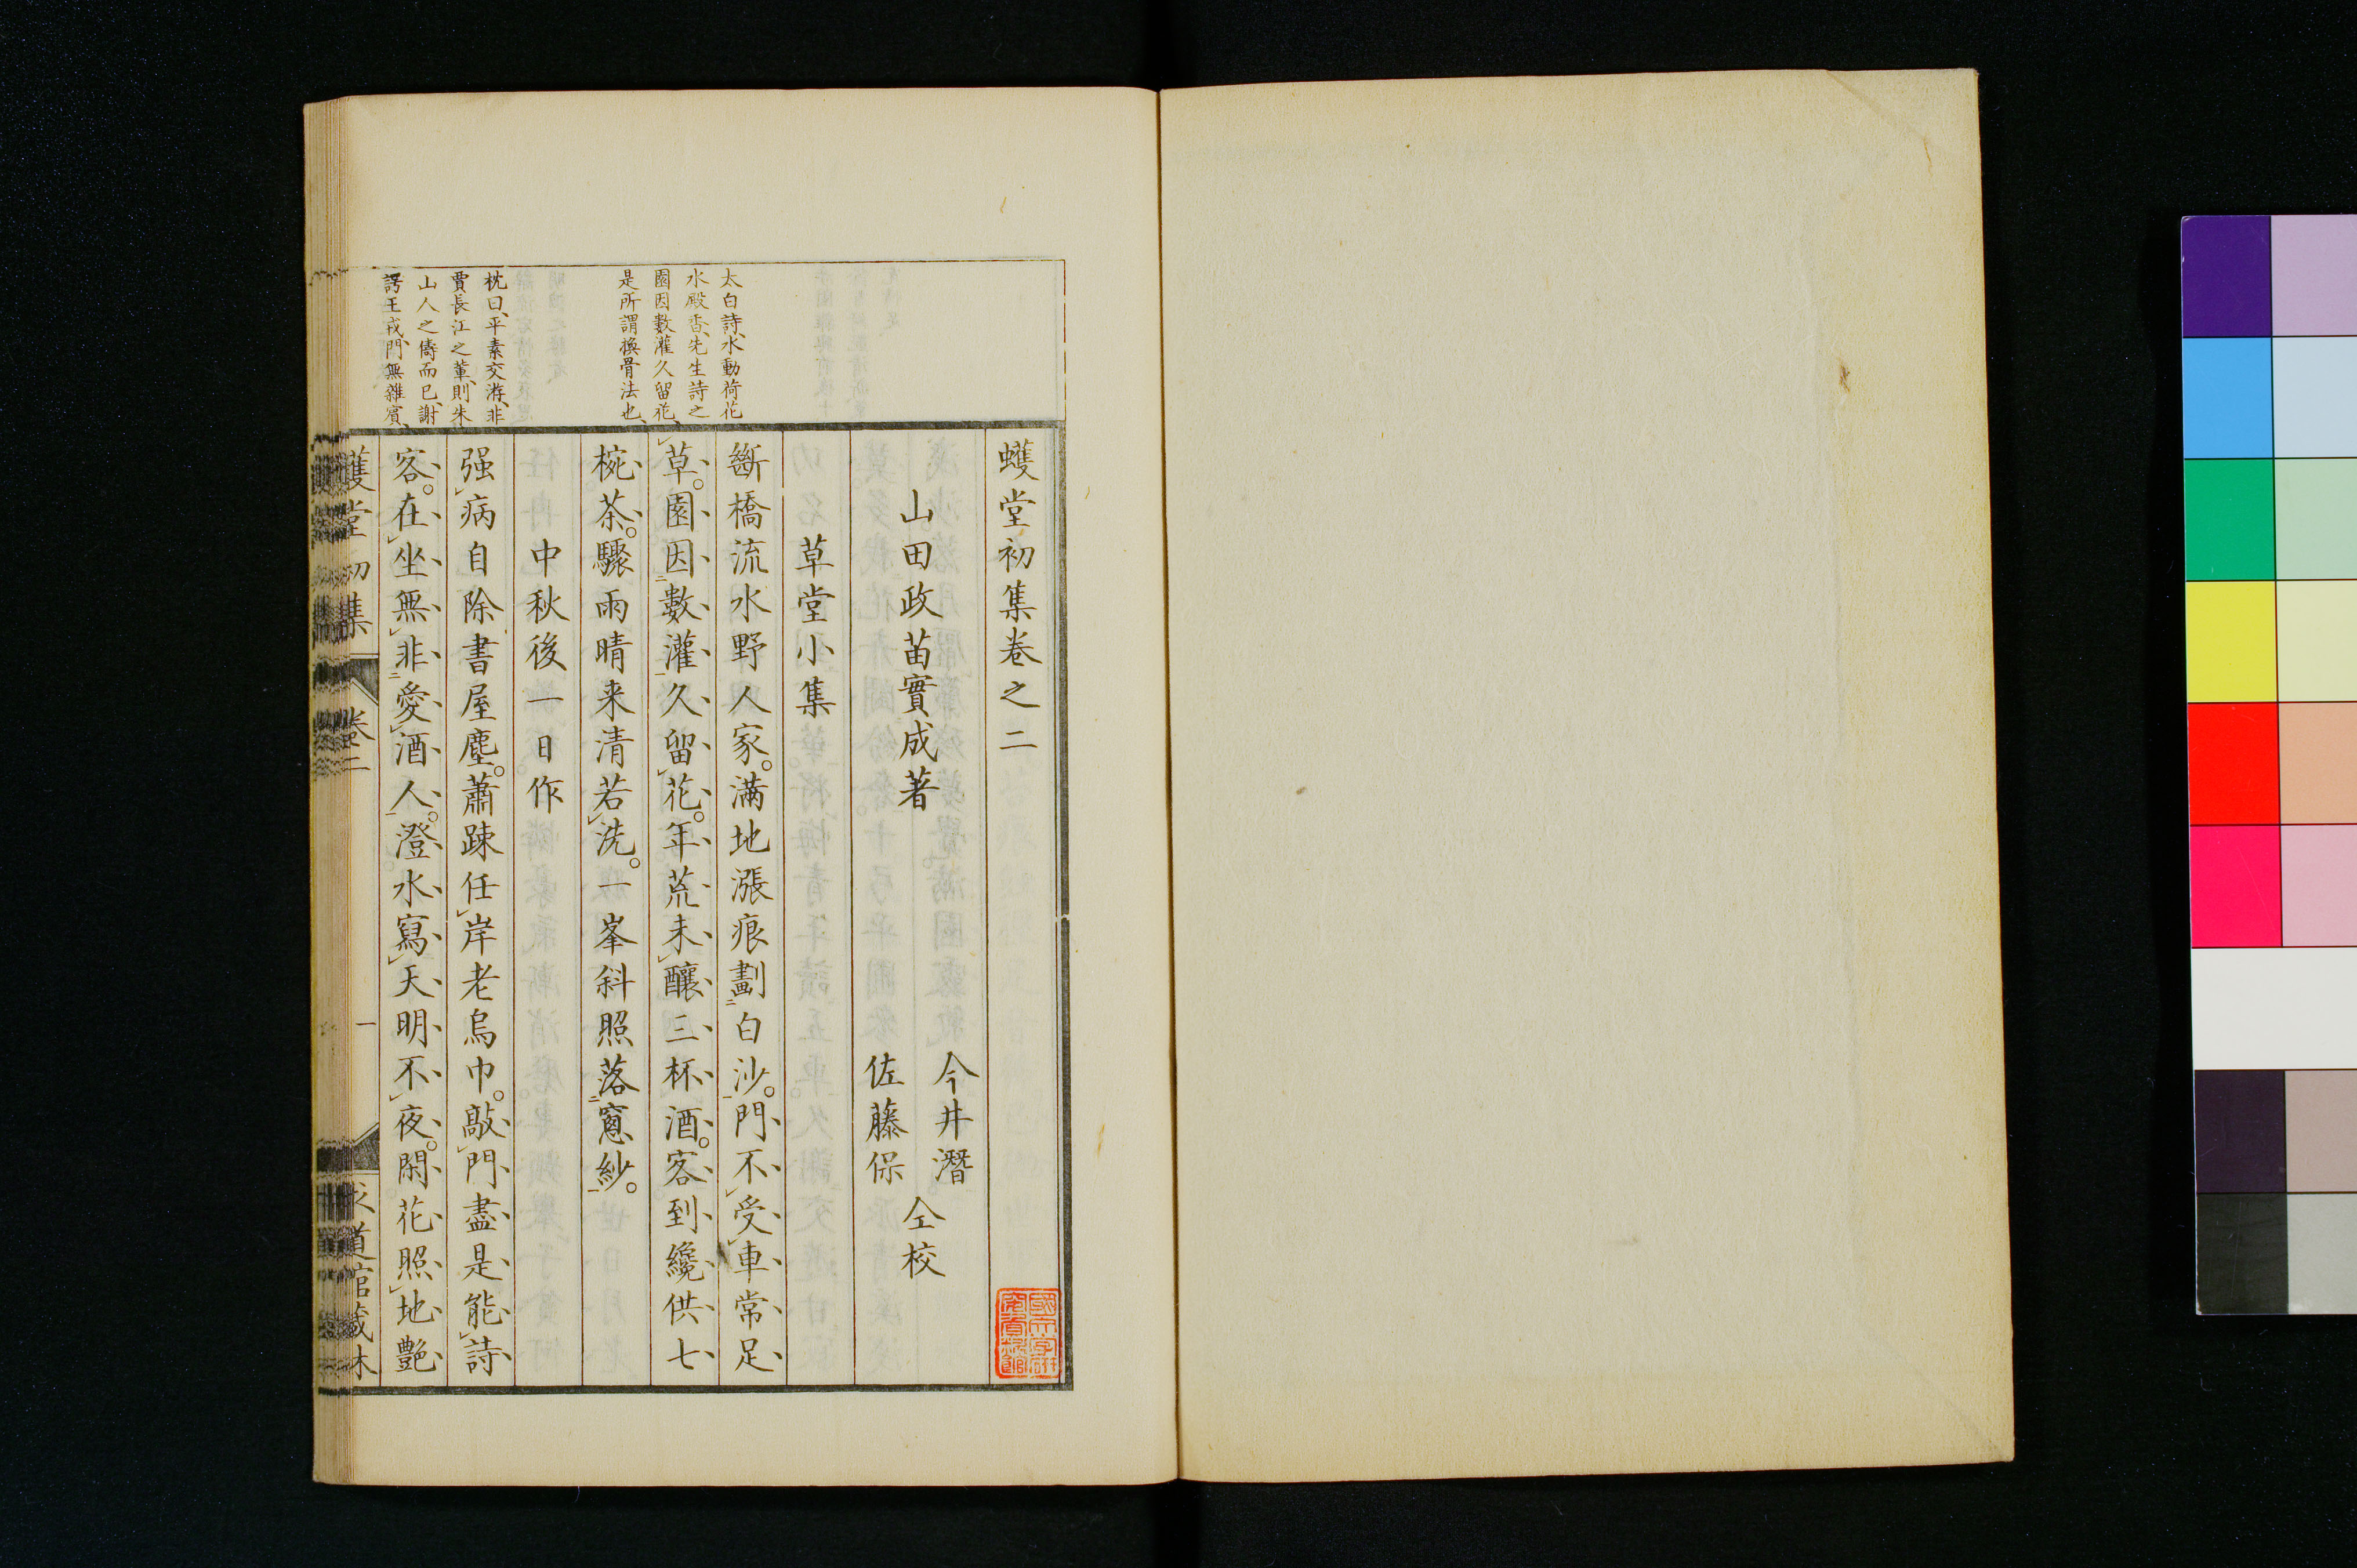 太白詩、水動荷花
水殿香、先生詩之
園因數灌久留花、
是所謂換骨法也、
枕曰、平素交游、非
賈長江之輩、則朱
山人之儔而已、謝
諤王戎、門無雜賓、
蠖堂初集卷之二
山田政苗實成著
今井潛
佐藤保
仝校
草堂小集
斷橋流水野人家。滿地漲痕劃二白沙一。門不レ受レ車常足
レ草。園因二數灌一久留レ花。年荒未レ釀三杯酒。客到纔供七
椀茶。驟雨晴来清若レ洗。一峯斜照落二窻紗一。
中秋後一日作
强レ病自除書屋塵。蕭疎任レ岸老烏巾。敲レ門盡是能レ詩
客。在レ坐無レ非二愛レ酒人一。澄水寫レ天明不レ夜。閑花照レ地艷
蠖堂初集 卷二 一 求道館藏本